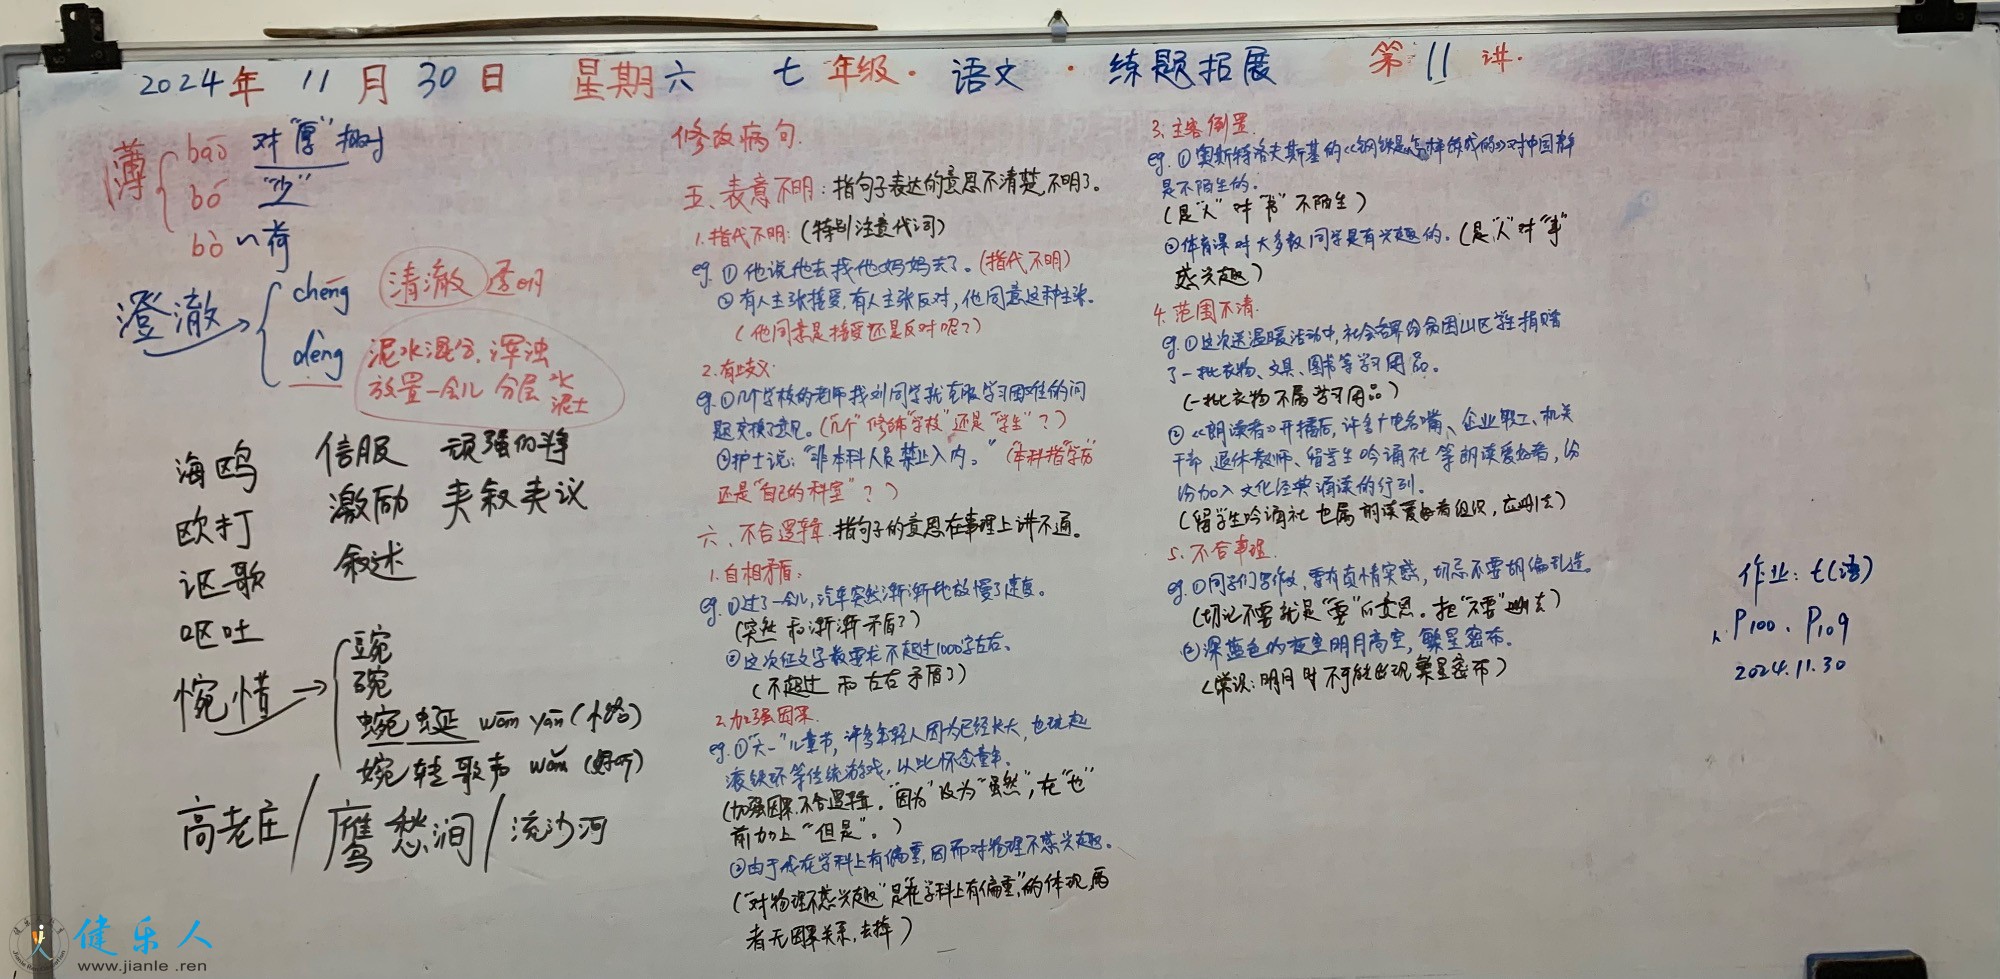 2024年 11月30日 星期六 七年级·语文·练题拓展 第11讲.
薄 bāo 对“厚”相对
bó “少”
bò ~荷
澄澈 chéng 清澈 透明
dèng 泥水混合,浑浊
放置一会儿 分层 水
泥土
海鸥 信服 顽强的斗争
欧打 激励 夹叙夹议
讴歌 叙述
呕吐
惋惜 豌
碗
蜿蜒 wān yán (小路)
婉转歌声 wǎn (好听)
高老庄/鹰愁涧/流沙河
修改病句.
五、表意不明:指句子表达的意思不清楚,不明了。
1.指代不明:(特别注意代词)
eg.①他说他去找他妈妈去了。(指代不明)
②有人主张接受,有人主张反对,他同意这种主张。
(他同意是接受还是反对呢?)
2.有歧义
eg.①几个学校的老师找刘同学就克服学习困难的问
题交换了意见。(“几个”修饰“学校”还是“学生”?)
②护士说:“非本科人员禁止入内。”(“本科指“学历”
还是“自己的科室”?)
六、不合逻辑.指句子的意思在事理上讲不通。
1.自相矛盾:
eg.①过了一会儿,汽车突然渐渐地放慢了速度。
(突然 和 渐渐 矛盾了)
②这次征文字数要求不超过1000字左右。
(不超过 和 左右 矛盾了)
2.加强因果.
eg.①“六一”儿童节,许多年轻人因为已经长大,也玩起
滚铁环等传统游戏,以此怀念童年。
(加强因果.不合逻辑.“因为”改为“虽然”,在“也”
前加上“但是”。)
②由于我在学科上有偏重,因而对物理不感兴趣。
(“对物理不感兴趣”是“在学科上有偏重”的体现,两
者无因果关系,去掉)
3.主客倒置.
eg.①奥斯特洛夫斯基的《钢铁是怎样炼成的》对中国青年
是不陌生的.
(是“人”对“书”不陌生)
②体育课对大多数同学是有兴趣的.(是“人”对“事”
感兴趣)
4.范围不清.
eg.①这次送温暖活动中,社会各界向贫困山区学生捐赠
了一批衣物、文具、图书等学习用品。
(一批衣物不属学习用品)
②《朗读者》开播后,许多广电名嘴、企业职工、机关
干部、退休教师、留学生吟诵社等朗读爱好者,纷
纷加入文化经典诵读的行列.
(留学生吟诵社也属朗读爱好者组织,应删去)
5.不合事理.
eg.①同学们写作文,要有真情实感,切忌不要胡编乱造。
(切记不要就是“要”的意思.把“不要”删去)
②深蓝色的夜空明月高空,繁星密布.
(常识:明月时不可能出现繁星密布)
作业:七(语)
P100、P109
2024.11.30
健乐人
www.jianle.ren